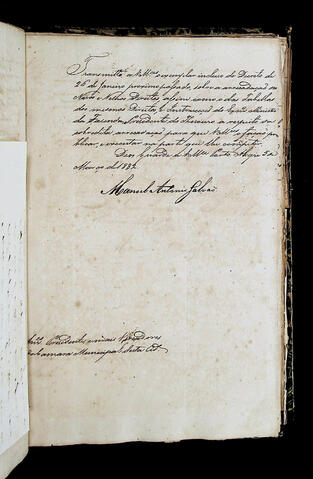 Transmitto a VMces o exemplar incluso do Decreto de
26 de Janeiro proximo passado, sobre a arrecadação dos
Novos e Velhos Direitos assim como o das Tabellas
dos mesmos Direitos, e Instrucções do Exmo Ministro
da Fazenda, Presidente do Thesouro a respeito da
sobredita arrecadação para que VMces fação pu-
blicar, e executar na parte que lhes competir.
Deos Guarde a VMces Porto Alegre 5 de
Março de 1832.
Manoel Antonio Galvão
Snres Presidente e mais Vereadores
da Camara Municipal desta Cide.